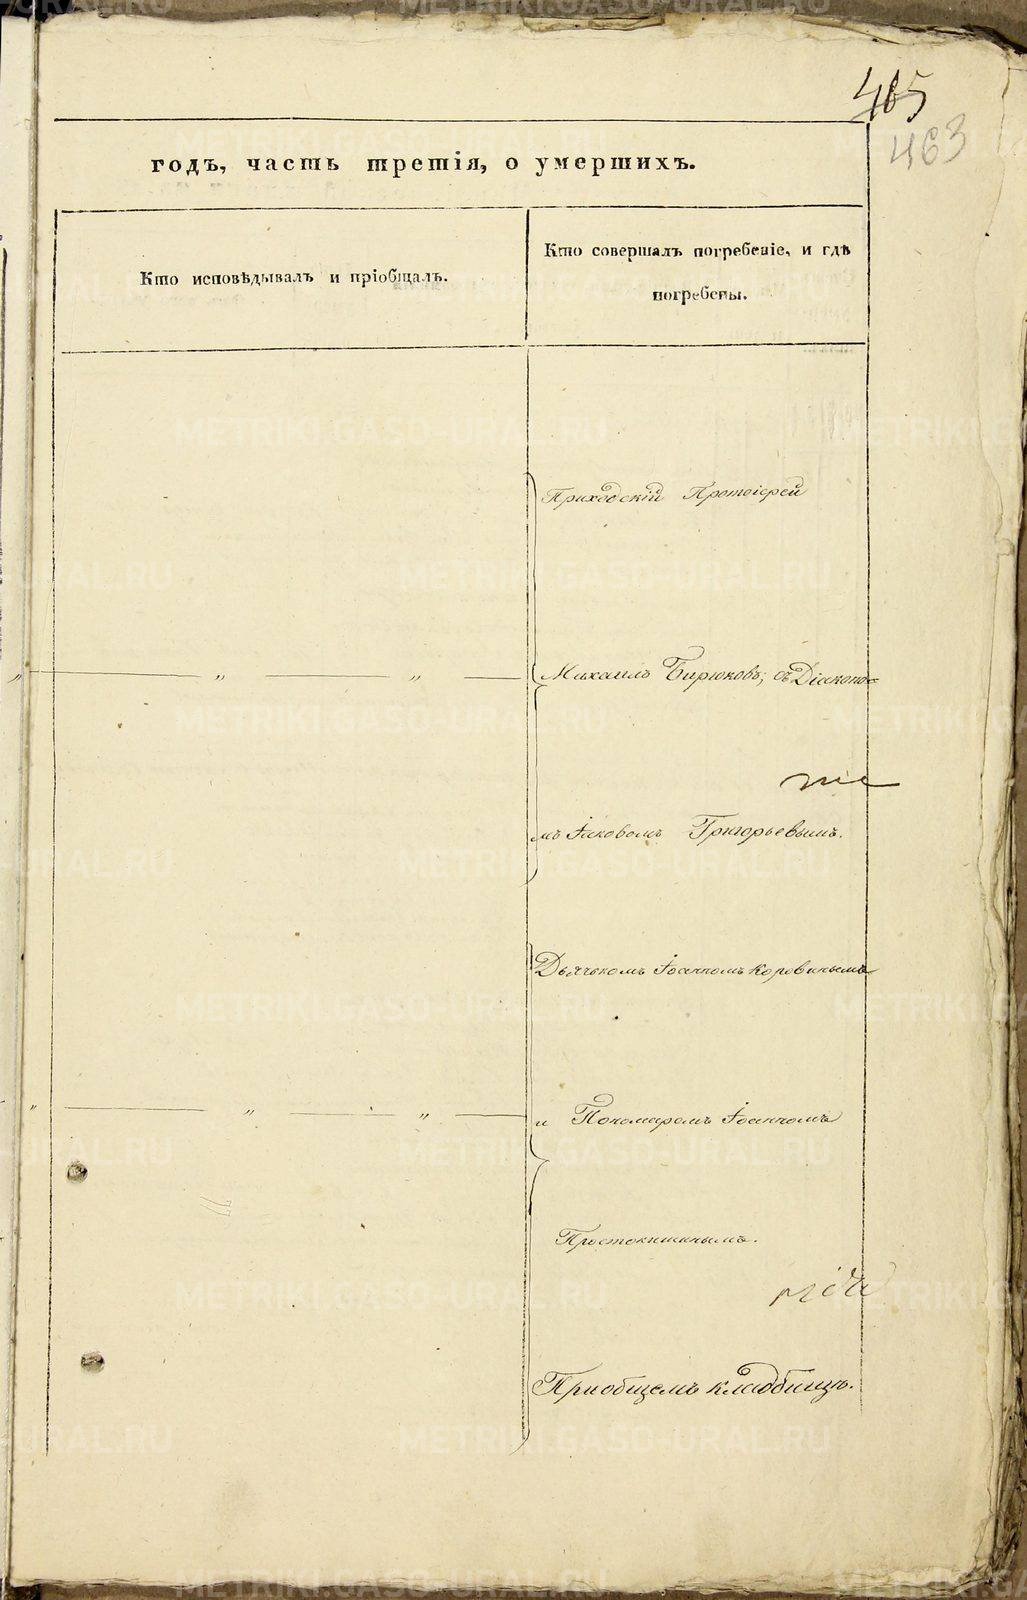 465
463
годъ, часть третія, о умершихъ.
Кто исповѣдывалъ и пріобщалъ.
Кто совершалъ погребеніе, и гдѣ
погребены.
Приходскій Протоіерей
" " " Михаилъ Бирюковъ; съ Діаконо-
мъ Іаковомъ Григорьевымъ.
Дьячькомъ Іоанномъ Коровинымъ
" " " и Пономаремъ Іоанномъ
Простокишинымъ.
Приобщемъ кладбищѣ.
METRIKI.GASO-URAL.RU